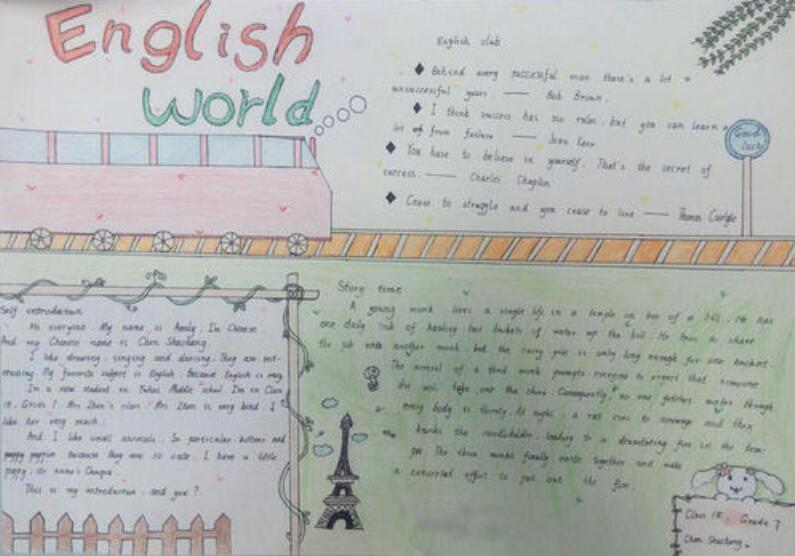 English
World
English club
Behind every successful man there's a lot
unsuccessful years. —— Bob Brown.
I think success has no rules, but you can learn a
lot of from failure —— Jean Kerr
You have to believe in yourself. That's the secret of
success. —— Charles Chaplin
Cease to struggle and you cease to live —— Thomas Carlyle
Good
luck
Self introduction
Hi everyone. My name is. I'm Chinese.
And my Chinese name is Chen Shachang.
I like drawing, singing and dancing. They are
My favorite subject is English. Because English is
I'm a new student in Middle school. I'm in Class
18. Grade 7. Mrs Zhen's class! Mrs Zhen is very kind. I
like her very much.
And I like small animals. In particular kittens and
because they are so cute. I have a little
puppy, its name's
This is my introduction, and you?
Story time
A young monk lives a simple life in a temple on top of a hill. He has
one daily task of hauling two buckets of water up the hill. He tries to share
the job with another monk, but the carry pole is only long enough for one bucket.
The arrival of a third monk prompts everyone to expect that someone
else will take on the chore. Consequently, no one fetches water though
every body is thirsty. At night, a rat comes to scrounge and then
knocks the candleholder, leading to a devastating fire in the
The three monks finally unite together and make
a concerted effort to put out the fire.
Class 18. Grade 7
Chen Shachang.